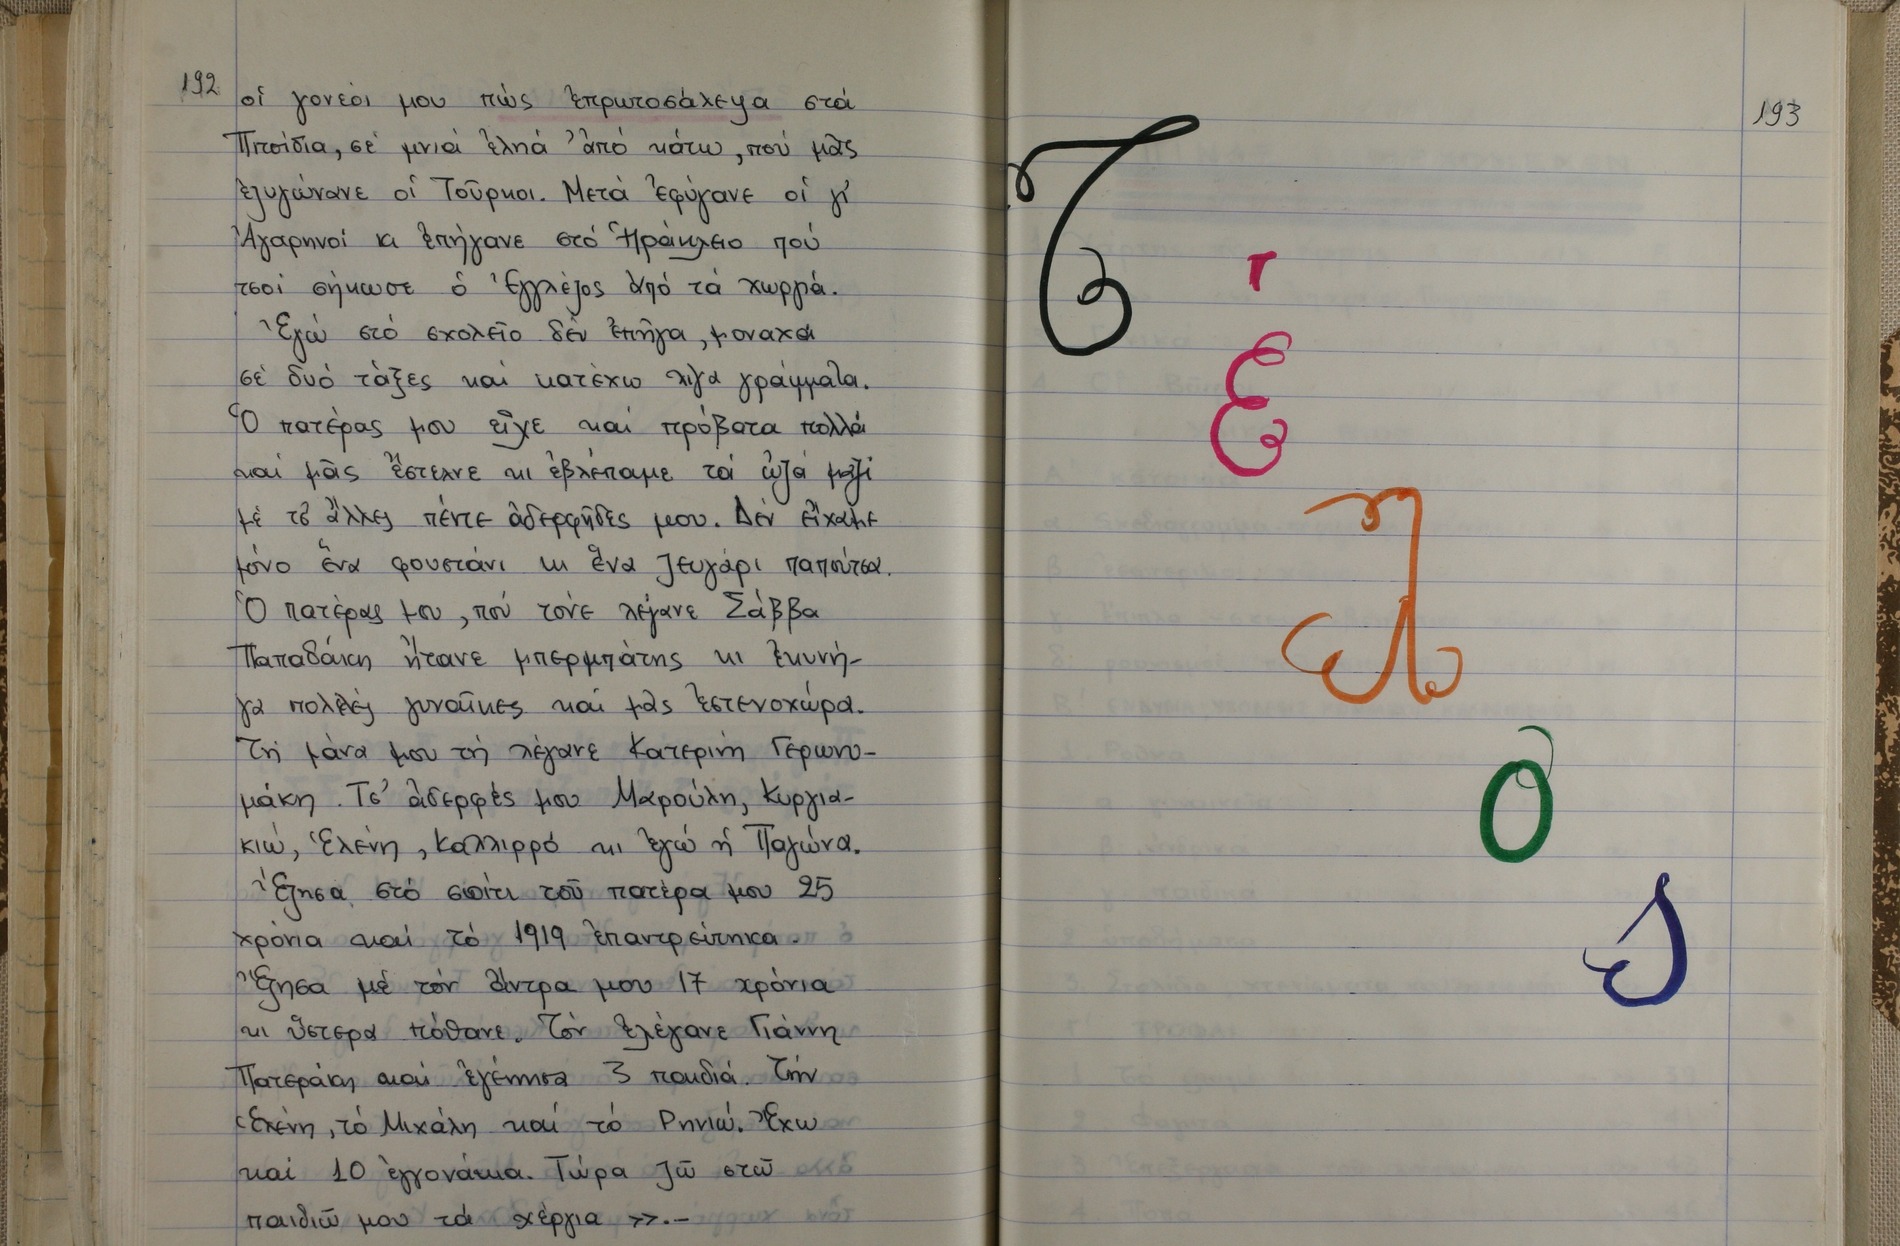 192
οἱ γονέοι μου πώς ἐπρωτοσάλεψα στά
Πιτσίδια, σέ μνιά ἐληά ἀπό κάτω, πού μᾶς
ἐζυγώνανε οἱ Τοῦρκοι. Μετά ἐφύγανε οἱ γι'
Ἀγαρηνοί κι ἐπήγανε στό Ἡράκλειο πού
τσοί σήκωσε ὁ Ἐγγλέζος ἀπό τά χωργιά.
Ἐγώ στό σχολεῖο δέν ἐπῆγα, μοναχά
σέ δυό τάξες καί κατέχω λίγα γράμματα.
Ὁ πατέρας μου εἶχε καί πρόβατα πολλά
καί μᾶς ἔστελνε κι ἐβλέπαμε τά ὠζά μαζί
μέ τσ' ἄλλες πέντε ἀδερφῆδες μου. Δέν εἴχαμε
μόνο ἕνα φουστάνι κι ἕνα ζευγάρι παπούτσα.
Ὁ πατέρας μου, πού τόνε λέγανε Σάββα
Παπαδάκη ἤτανε μπερμπάτης κι ἐκυνή-
γα πολλές γυναῖκες καί μᾶς ἐστενοχώρα.
Τή μάνα μου τή λέγανε Κατερίνη Γερωνυ-
μάκη. Τσ' ἀδερφές μου Μαρούλη, Κυργια-
κιώ, Ἑλένη, Καλλιρρό κι ἐγώ ἡ Παγώνα.
Ἔζησα στό σπίτι τοῦ πατέρα μου 25
χρόνια καί τό 1919 ἐπαντρεύτηκα.
Ἔζησα μέ τόν ἄντρα μου 17 χρόνια
κι ὕστερα πόθανε. Τόν ἐλέγανε Γιάννη
Πατεράκη καί ἐγέννησα 3 παιδιά. Τήν
Ἑλένη, τό Μιχάλη καί τό Ρηνιώ. Ἔχω
καί 10 ἐγγονάκια. Τώρα ζῶ στῶ
παιδιῶ μου τά χέργια >>.-
193
Τ
Ε
Λ
Ο
Σ